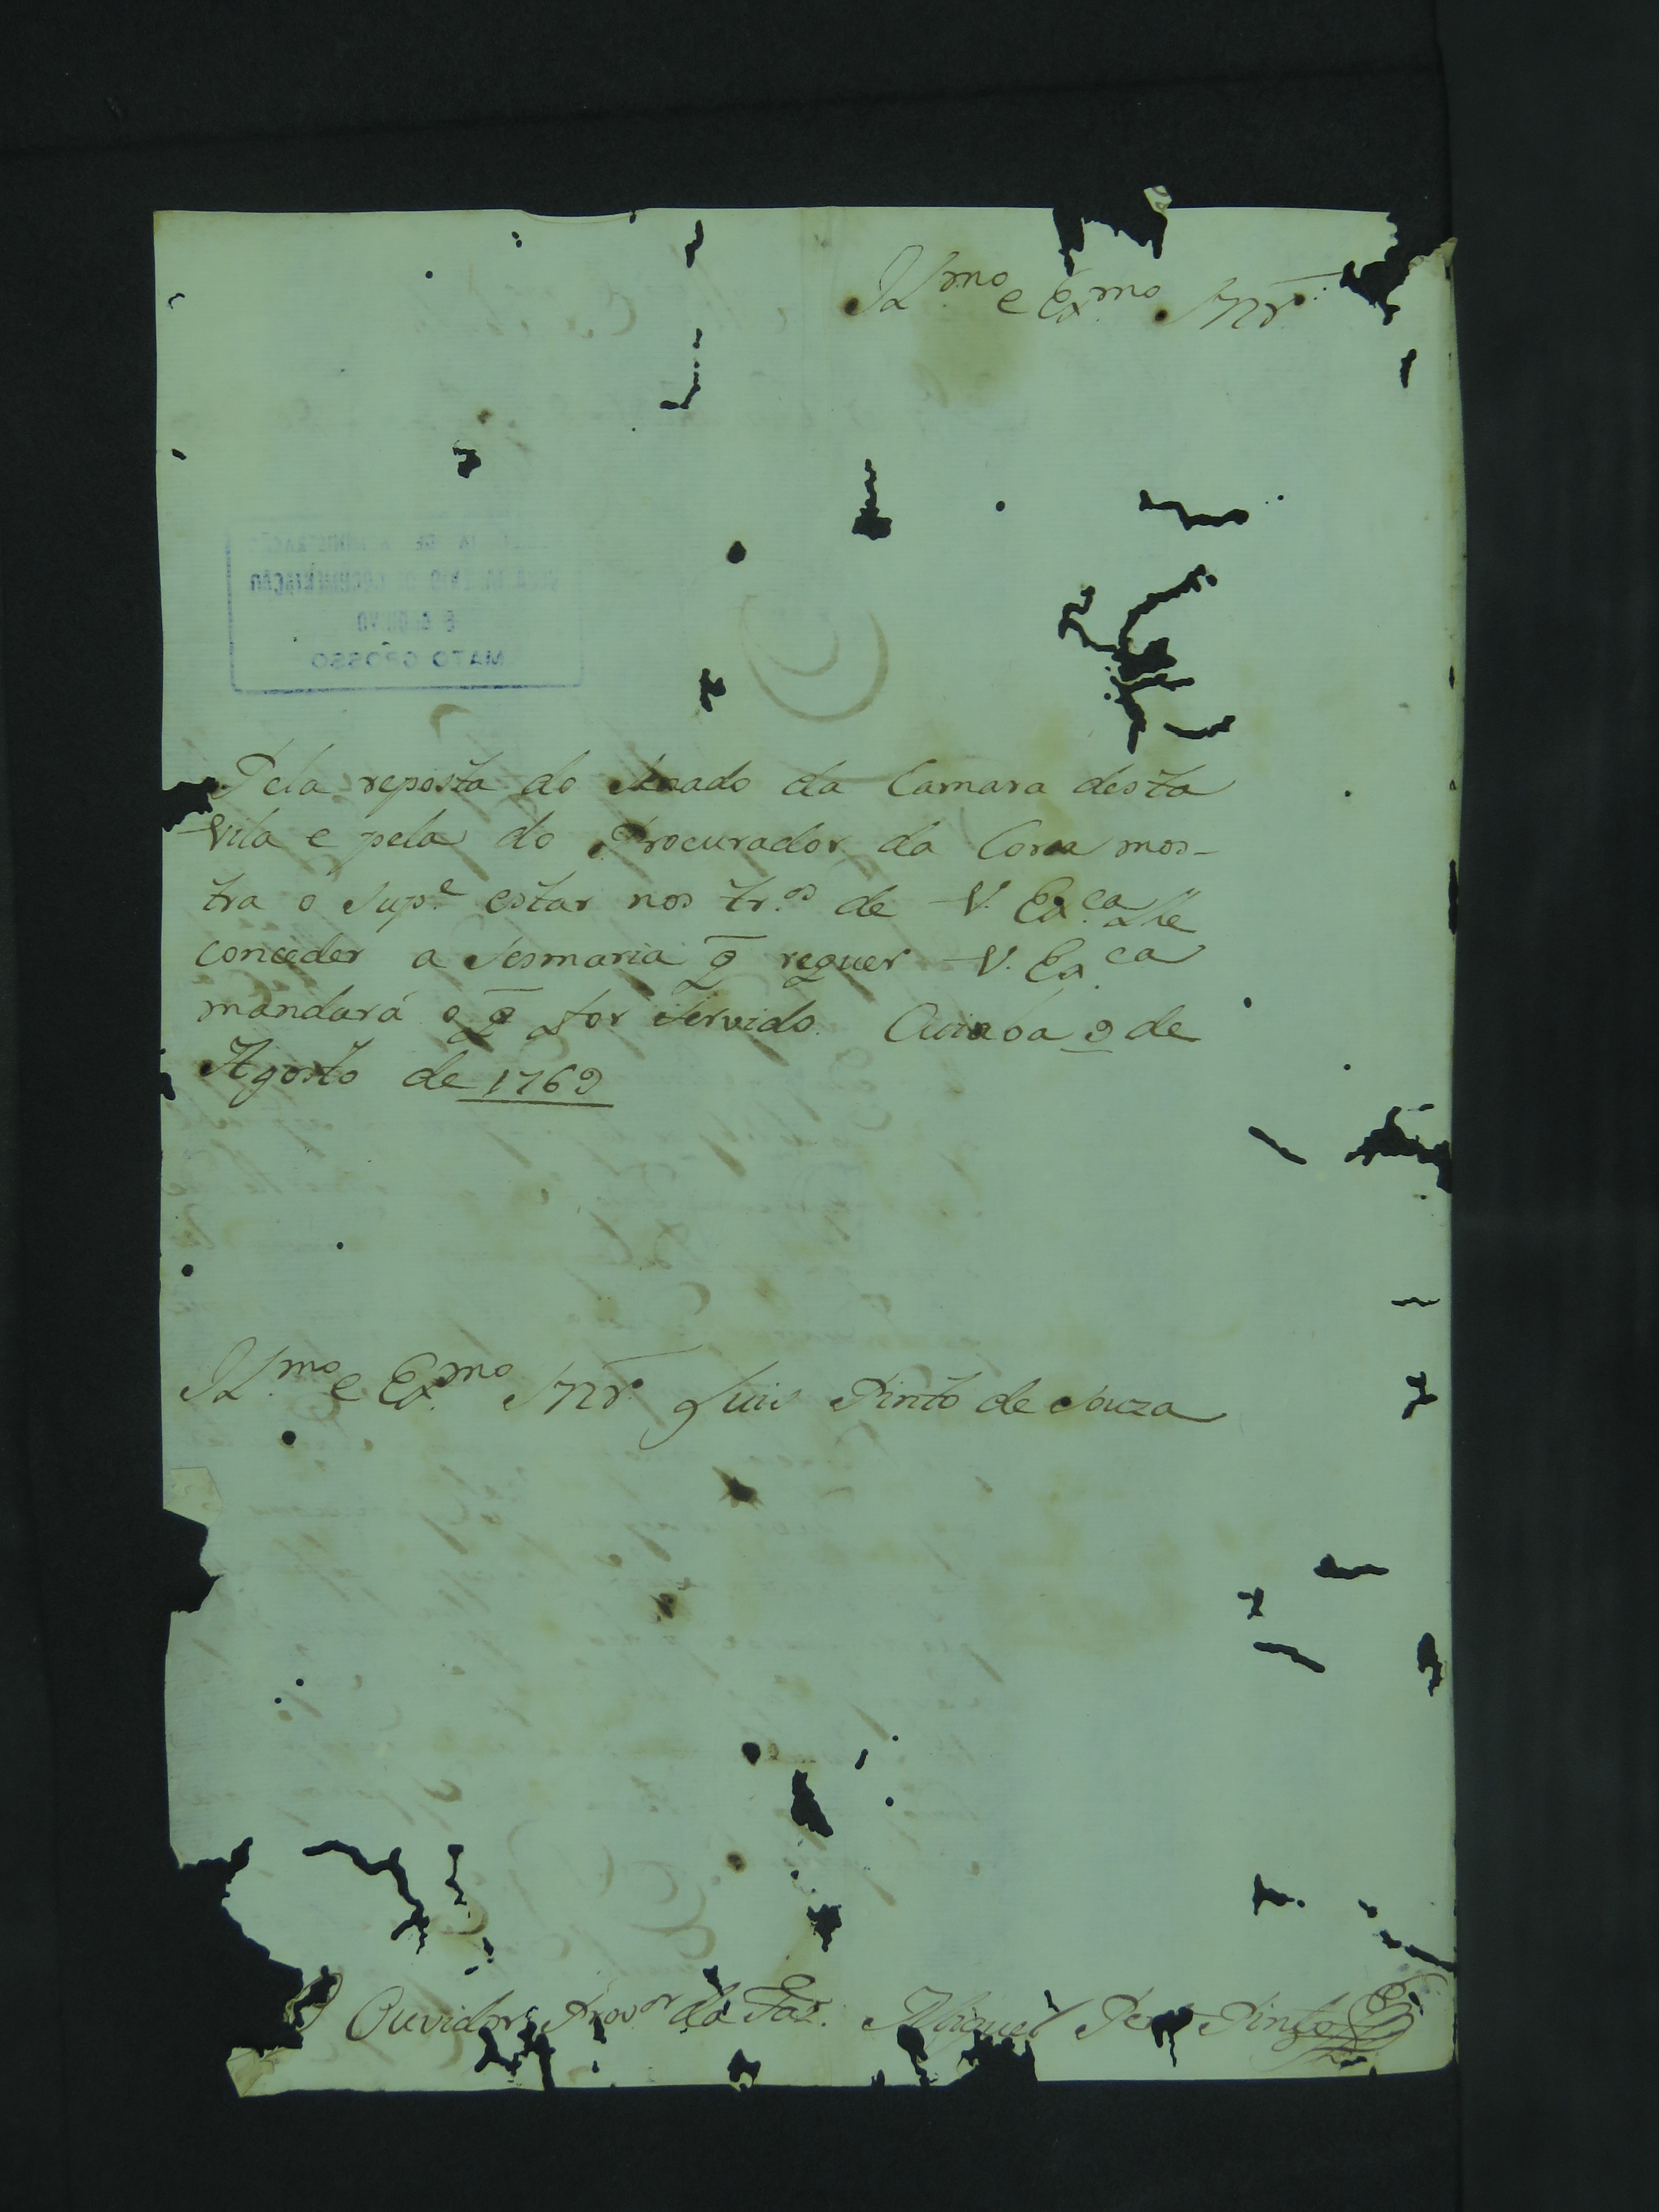 Il.mo e Ex.mo Snr.
Pela reposta do Senado da Camara desta
Vila e pela do Procurador da Coroa mos-
tra o Sup.e estar nos tr.os de V. Ex.ca lhe
conceder a Sesmaria q̃ requer V. Ex.ca
mandará o q̃ for Servido. Cuiaba 9 de
Agosto de 1769
Il.mo e Ex.mo Snr. Luis Pinto de Souza
MATO GROSSO
O Ouvidor Prov.or da Faz. Miguel Per.a Pinto